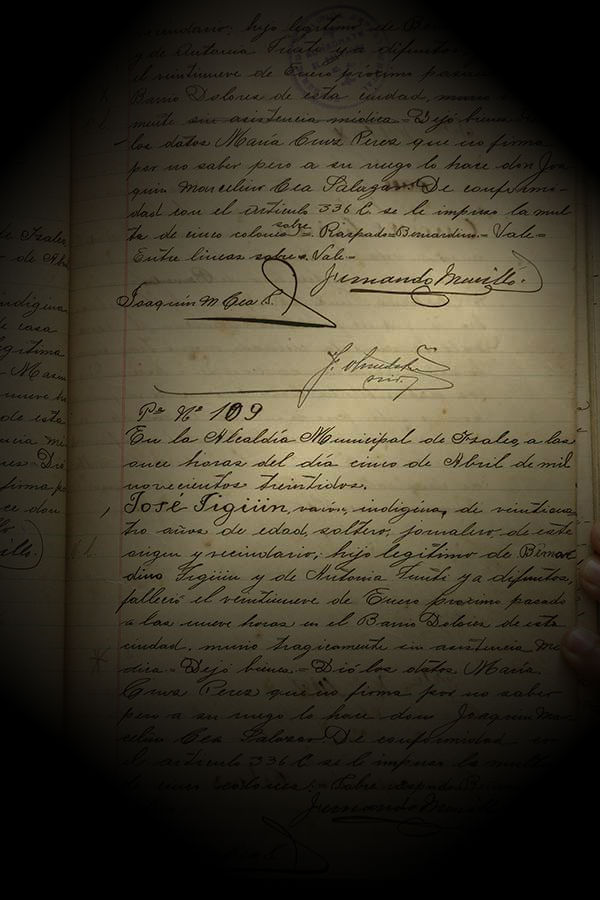 hijo legítimo de
y de Antonia Tustí ya difuntos
el veintinueve de Enero próximo pasado
Barrio Dolores de esta ciudad,
mente sin asistencia médica = Dejó bienes
los datos María Cruz Perez que no firma
por no saber pero a su ruego lo hace don Joa
quin Marcelino Cea Salazar. De conformi-
dad con el artículo 336 C. se le impuso la mul
ta de cinco colones = Raspado = Bernardino = Vale =
sobre
Entre lineas sobre. Vale =
Fernando Murillo.
Joaquin M Cea S.
srio.
Pda Nº 109
En la Alcaldía Municipal de Izalco, a las
once horas del día cinco de Abril de mil
novecientos treintidos.
José Tigüiin, varón, indígena, de veinticua
tro años de edad, soltero, jornalero de este
origen y vecindario; hijo legítimo de Bernar
dino Tigüiin y de Antonia Tustí ya difuntos,
falleció el veintinueve de Enero proximo pasado
a las nueve horas en el Barrio Dolores de esta
ciudad, murió tragicamente sin asistencia mé
dica = Dejó bienes = Dió los datos María
Cruz Perez que no firma por no saber
pero a su ruego lo hace don Joaquin Mar
celino Cea Salazar. De conformidad con
el artículo 336 C. se le impuso la multa
de cinco colones = Sobre raspado
Fernando Murillo